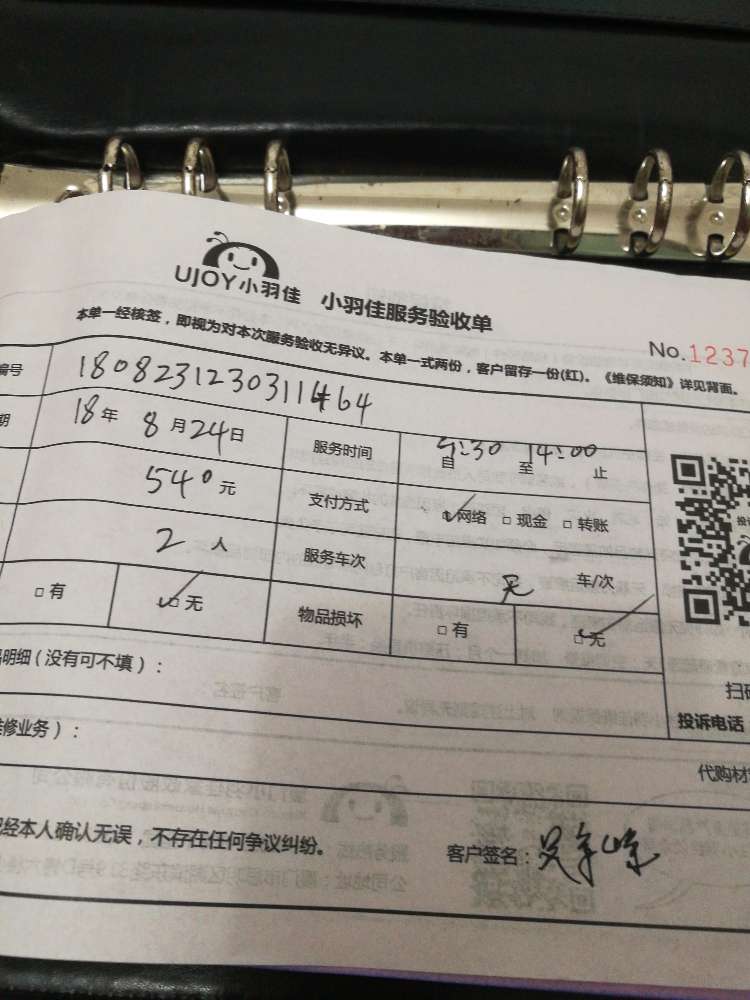 UJOY小羽佳 小羽佳服务验收单
本单一经核签，即视为对本次服务验收无异议。本单一式两份，客户留存一份(红)。《维保须知》详见背面。
No.1237
编号 1808231230311464
期 18年 8月24日 服务时间 自 至14:00止
540元 支付方式 网络 现金 转账
2人 服务车次 无 车/次
有 无 物品损坏 有 无
明细（没有可不填）：
扫
投诉电话
修业务）：
代购材
经本人确认无误，不存在任何争议纠纷。
客户签名：